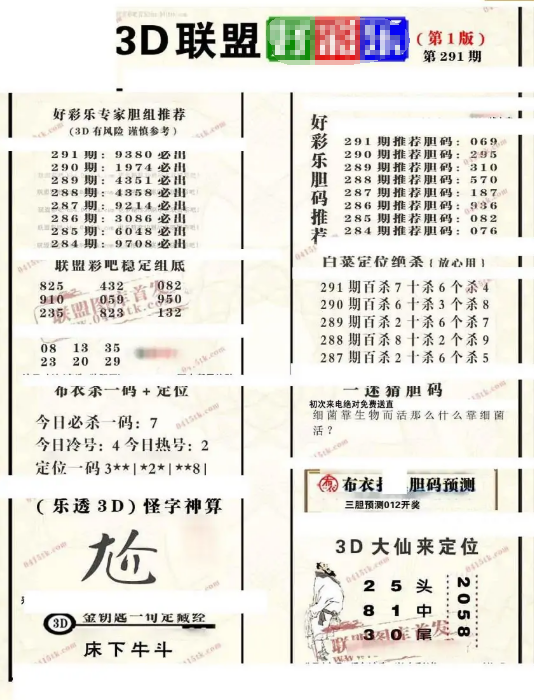 3D联盟
(第1版)
第291期
好彩乐专家胆组推荐
(3D有风险 谨慎参考)
291期: 9380必出
290期: 1974必出
289期: 4351必出
288期: 4358必出
287期: 9214必出
286期: 3086必出
285期: 6048必出
284期: 9708必出
联盟彩吧稳定组底
825 432 082
910 059 950
235 823 132
08 13 35
23 20 29
布衣杀一码+定位
今日必杀一码: 7
今日冷号: 4 今日热号: 2
定位一码3**|*2*|**8|
(乐透3D)怪字神算
尬
3D 金钥匙一句定藏经
床下牛斗
好彩乐胆码推荐
291期推荐胆码: 069
290期推荐胆码: 295
289期推荐胆码: 310
288期推荐胆码: 570
287期推荐胆码: 187
286期推荐胆码: 936
285期推荐胆码: 082
284期推荐胆码: 076
白菜定位绝杀(放心用)
291期百杀7十杀6个杀4
290期百杀6十杀3个杀8
289期百杀2十杀6个杀7
288期百杀8十杀2个杀9
287期百杀2十杀6个杀5
一迷猜胆码
初次来电绝对免费送直
细菌靠生物而活那么什么靠细菌
活?
布衣 胆码预测
三胆预测012开奖
3D大仙来定位
2 5 头
8 1 中
3 0 尾
2058
联盟图库首发
www.0415tk.com